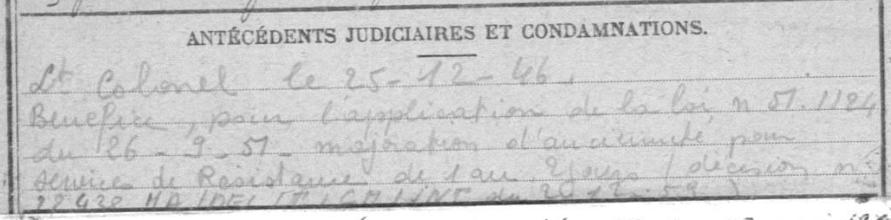 ANTÉCÉDENTS JUDICIAIRES ET CONDAMNATIONS.
Lt Colonel le 25-12-46.
Bénéficie, pour l'application de la loi n 51.1124
du 26-9-51- majoration d'ancienneté pour
services de Résistance de 1 an 2 jours (décision n°
du